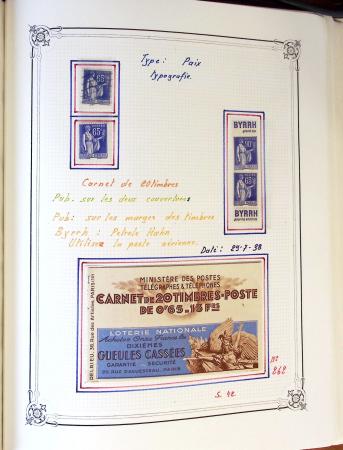 Type: Paix
typografie.
65c
65c
BYRRH
90c
65c
BYRRH
Carnet de 20 timbres
Pub. sur les deux couvertures
Pub: sur les marges des timbres
Byrrh : Petrole Hahn
Utilisez la poste aérienne.
Daté: 29-7-38
MINISTÈRE DES POSTES
TÉLÉGRAPHES & TÉLÉPHONES
CARNET DE 20 TIMBRES-POSTE
DE 0F65 = 13 FRS
LOTERIE NATIONALE
DIXIÈMES
GUEULES CASSÉES
GARANTIE SÉCURITÉ
20 RUE D'AGUESSEAU, PARIS
DELRIEU, 36, Rue des Artistes, PARIS
No
262
S. 42.